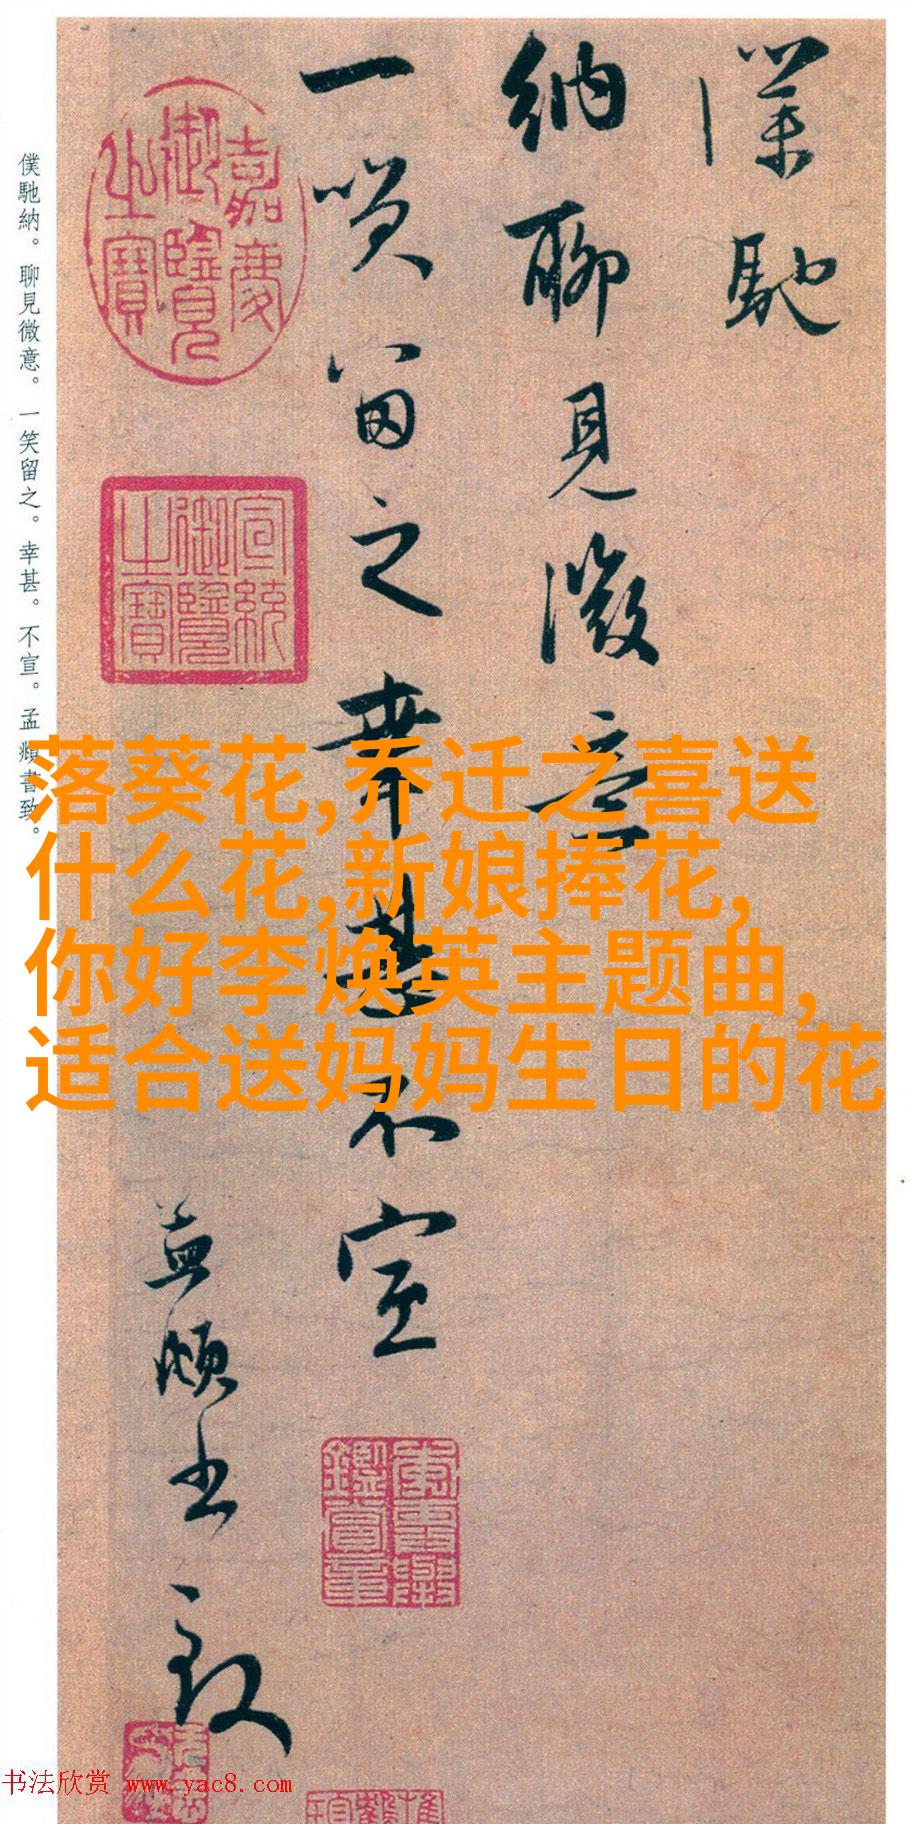 僕馳
納聊見微意
一笑留之幸甚不宣
孟頫書致
嘉慶御覽之寶
宣統御覽之寶
僕馳納。聊見微意。一笑留之。幸甚。不宣。孟頫書致。
落葵花,乔迁之喜送
什么花,新娘捧花,
你好李焕英主题曲,
适合送妈妈生日的花
书法欣赏 www.yac8.com